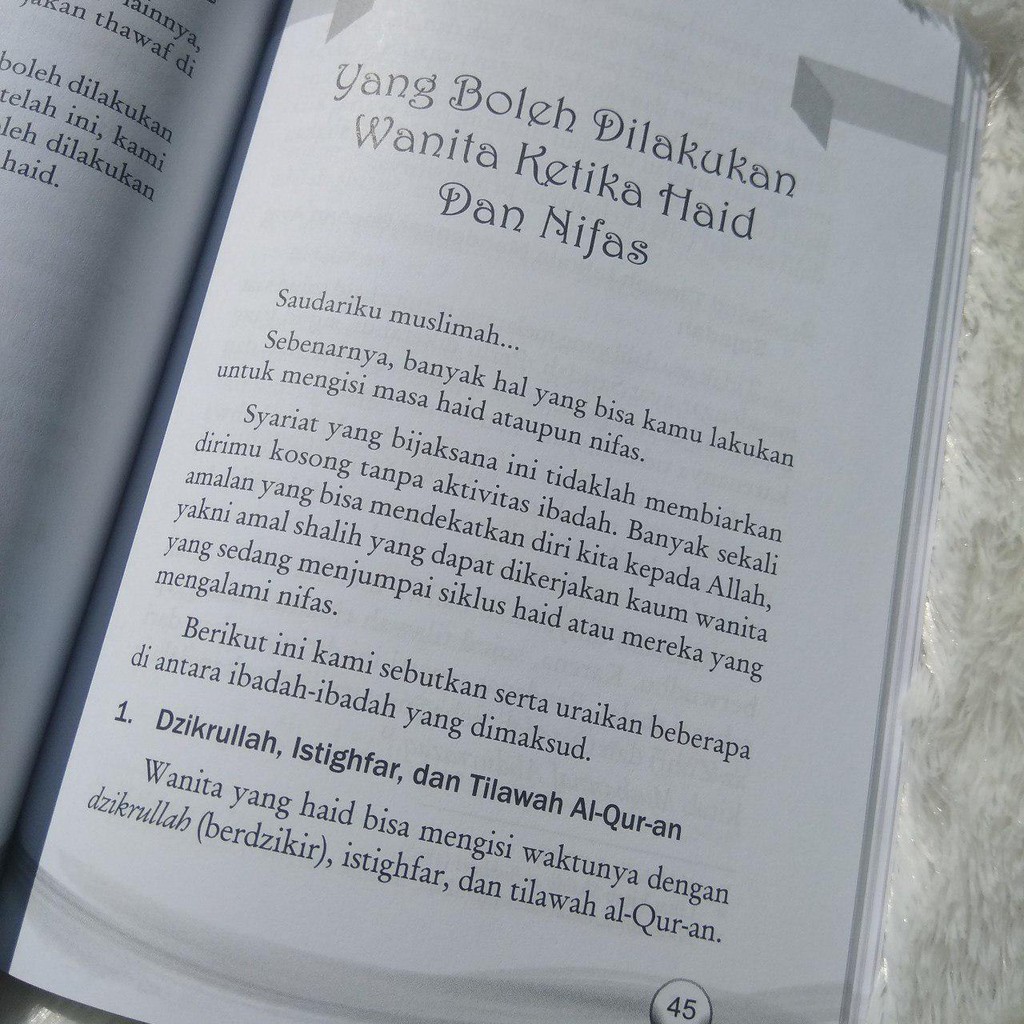 lainnya,
thawaf di
boleh dilakukan
telah ini, kami
leh dilakukan
haid.
Yang Boleh Dilakukan
Wanita Ketika Haid
Dan Nifas
Saudariku muslimah...
Sebenarnya, banyak hal yang bisa kamu lakukan
untuk mengisi masa haid ataupun nifas.
Syariat yang bijaksana ini tidaklah membiarkan
dirimu kosong tanpa aktivitas ibadah. Banyak sekali
amalan yang bisa mendekatkan diri kita kepada Allah,
yakni amal shalih yang dapat dikerjakan kaum wanita
yang sedang menjumpai siklus haid atau mereka yang
mengalami nifas.
Berikut ini kami sebutkan serta uraikan beberapa
di antara ibadah-ibadah yang dimaksud.
1. Dzikrullah, Istighfar, dan Tilawah Al-Qur-an
Wanita yang haid bisa mengisi waktunya dengan
dzikrullah (berdzikir), istighfar, dan tilawah al-Qur-an.
45